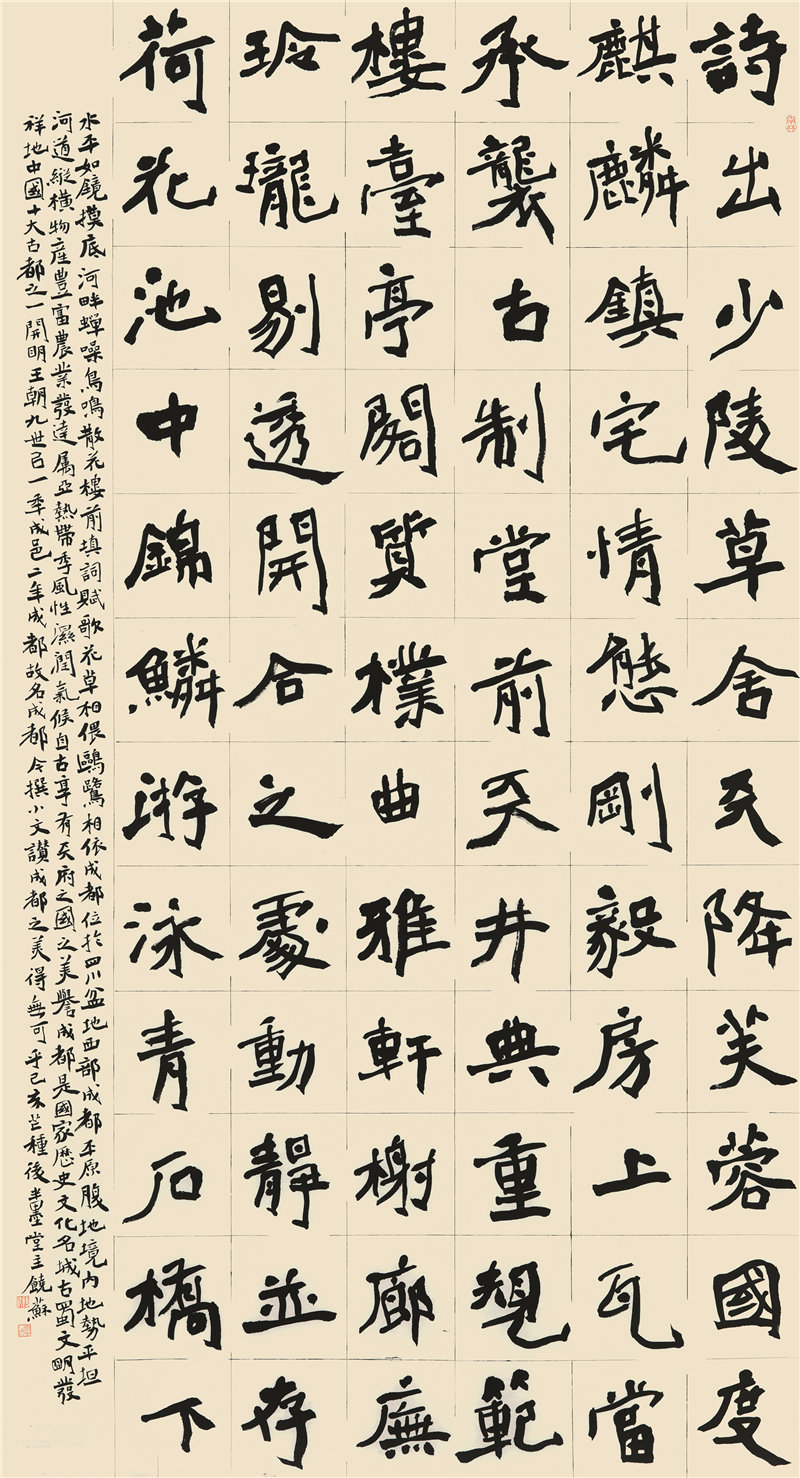 詩出少陵草舍天降芙蓉國度
麒麟鎮宅情態剛毅房上瓦當
承襲古制堂前天井典重規範
樓臺亭閣質樸曲雅軒榭廊廡
玲瓏剔透開合之處動靜並存
荷花池中錦鱗游泳青石橋下
水平如鏡摸底河畔蟬噪鳥鳴散花樓前填詞賦歌花草相偎鷗鷺相依成都位於四川盆地西部成都平原腹地境內地勢平坦
河道縱橫物產豐富農業發達属亞熱帶季風性濕潤氣候自古享有天府之國之美譽成都是國家歷史文化名城古蜀文明發
祥地中國十大古都之一開明王朝九世己一年成邑二年成都故名成都今撰小文讚成都之美得無可乎己亥芒種後半墨堂主饒蘇